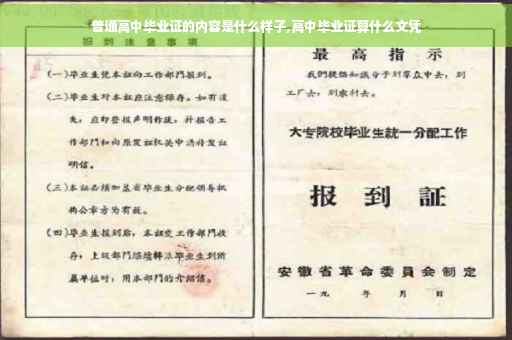 普通高中毕业证的内容是什么样子,高中毕业证算什么文凭
报到注意事项
(一)毕业生凭本证向工作部门报到。
(二)毕业生对本证应注意保存。如有遗
失，应即登报声明作废，并报告工
作部门和向原发证机关申请补发证
明信。
(三)本证必须加盖省毕业生分配领导机
构公章方为有效。
(四)毕业生报到后，本证交工作部门收
存；上级部门继续转派毕业生到所
属单位时，用本部门的介绍信。
最高指示
我们提倡知识分子到群众中去，到
工厂去，到农村去。
大专院校毕业生统一分配工作
报到证
安徽省革命委员会制定
一九 年 月 日